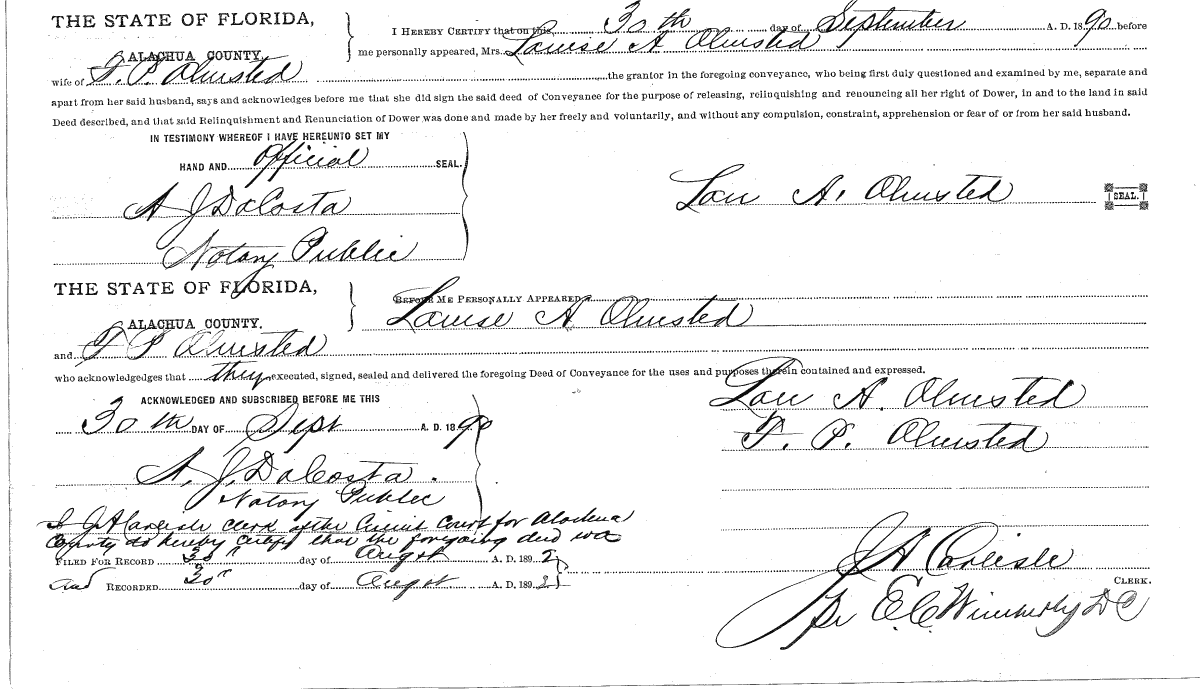 THE STATE OF FLORIDA,
ALACHUA COUNTY.
I HEREBY CERTIFY that on this 30th day of September A. D. 1890 before
me personally appeared, Mrs. Louise A Olmsted
wife of F. P. Olmsted the grantor in the foregoing conveyance, who being first duly questioned and examined by me, separate and
apart from her said husband, says and acknowledges before me that she did sign the said deed of Conveyance for the purpose of releasing, relinquishing and renouncing all her right of Dower, in and to the land in said
Deed described, and that said Relinquishment and Renunciation of Dower was done and made by her freely and voluntarily, and without any compulsion, constraint, apprehension or fear of or from her said husband.
IN TESTIMONY WHEREOF I HAVE HEREUNTO SET MY
HAND AND Official SEAL.
A J DaCosta
Notary Public
Lou A. Olmsted SEAL.
THE STATE OF FLORIDA,
ALACHUA COUNTY.
BEFORE ME PERSONALLY APPEARED
Louise A Olmsted
and F P Olmsted
who acknowledgedges that they executed, signed, sealed and delivered the foregoing Deed of Conveyance for the uses and purposes therein contained and expressed.
ACKNOWLEDGED AND SUBSCRIBED BEFORE ME THIS
30th DAY OF Sept A. D. 1890
A. J. DaCosta.
Notary Public
Lou A. Olmsted
F. P. Olmsted
I J A Carlisle clerk of the Circuit Court for Alachua
County do hereby certify that the foregoing deed was
FILED FOR RECORD 30" day of Augst A. D. 1892
and RECORDED 30" day of Augst A. D. 1892
J A Carlisle
CLERK.
Pr E. C. Wimberly D C